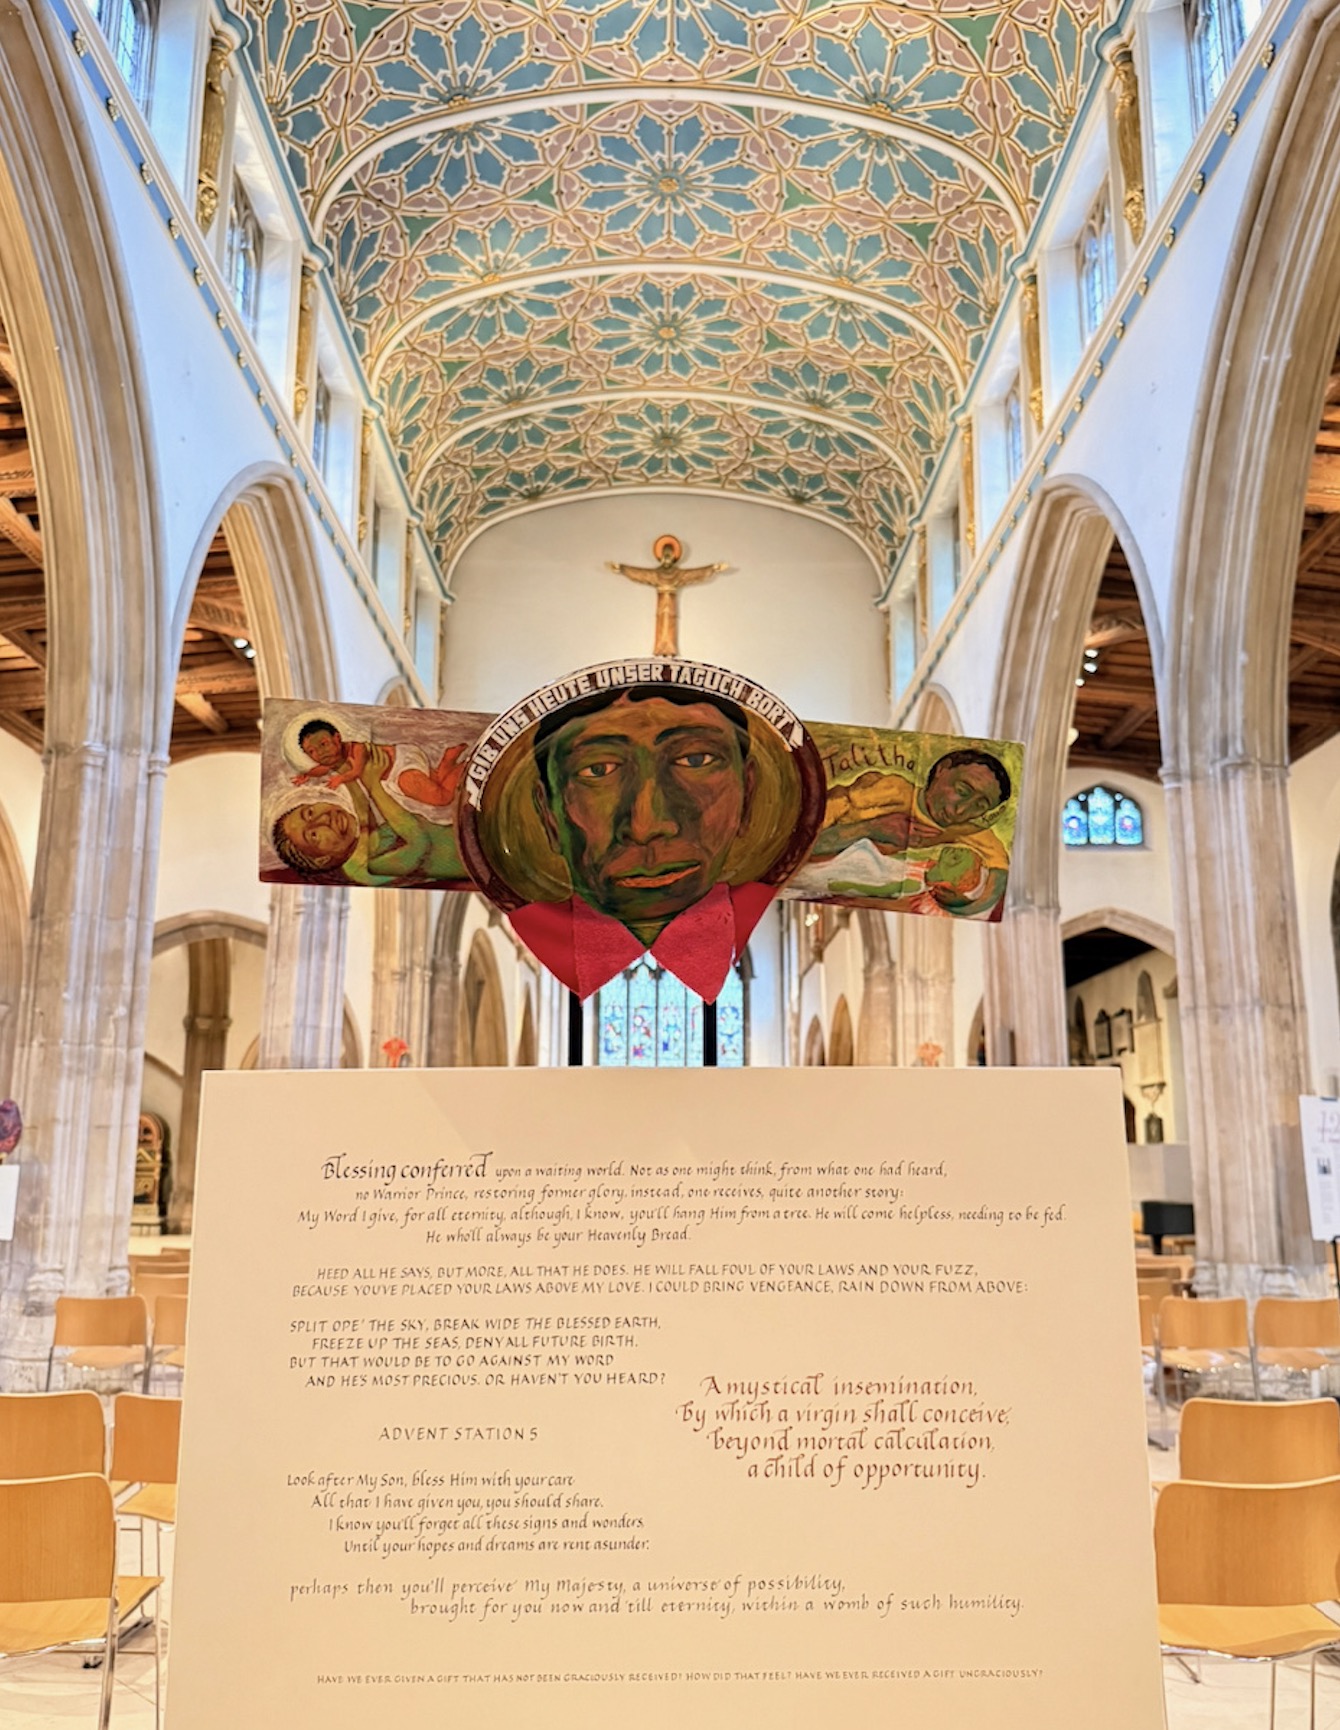 GIB UNS HEUTE UNSER TAGLICH BORT
Talitha
Blessing conferred upon a waiting world. Not as one might think, from what one had heard,
no Warrior Prince, restoring former glory, instead, one receives, quite another story:
My Word I give, for all eternity, although, I know, you'll hang Him from a tree. He will come helpless, needing to be fed.
He who'll always be your Heavenly Bread.
HEED ALL HE SAYS, BUT MORE, ALL THAT HE DOES. HE WILL FALL FOUL OF YOUR LAWS AND YOUR FUZZ,
BECAUSE YOU'VE PLACED YOUR LAWS ABOVE MY LOVE. I COULD BRING VENGEANCE, RAIN DOWN FROM ABOVE:
SPLIT OPE' THE SKY, BREAK WIDE THE BLESSED EARTH,
FREEZE UP THE SEAS, DENY ALL FUTURE BIRTH.
BUT THAT WOULD BE TO GO AGAINST MY WORD
AND HE'S MOST PRECIOUS. OR HAVEN'T YOU HEARD?
A mystical insemination,
by which a virgin shall conceive,
beyond mortal calculation,
a child of opportunity.
ADVENT STATION 5
Look after My Son, bless Him with your care
All that I have given you, you should share.
I know you'll forget all these signs and wonders
Until your hopes and dreams are rent asunder:
perhaps then you'll perceive My Majesty, a universe of possibility,
brought for you now and 'till eternity, within a womb of such humility.
HAVE WE EVER GIVEN A GIFT THAT HAS NOT BEEN GRACIOUSLY RECEIVED? HOW DID THAT FEEL? HAVE WE EVER RECEIVED A GIFT UNGRACIOUSLY?